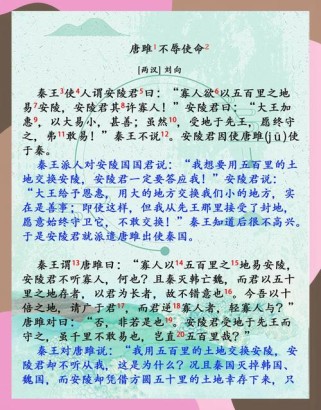 唐雎1不辱使命2
[两汉] 刘向
秦王3使4人谓安陵君5曰：“寡人欲6以五百里之地
易7安陵，安陵君其8许寡人！”安陵君曰：“大王加
惠9，以大易小，甚善；虽然10，受地于先王，愿终守
之，弗11敢易！”秦王不说12。安陵君因使唐雎(jū)使
于秦。
秦王派人对安陵国国君说：“我想要用五百里的土
地交换安陵，安陵君一定要答应我！”安陵君说：
“大王给予恩惠，用大的地方交换我们小的地方，实
在是善事；即使这样，但我从先王那里接受了封地，
愿意始终守卫它，不敢交换！”秦王知道后很不高兴。
于是安陵君就派遣唐雎出使秦国。
秦王谓13唐雎曰：“寡人以14五百里之15地易安陵，
安陵君不听寡人，何也？且秦灭韩亡魏，而君以五十
里之地存者，以君为长者，故不错意也16。今吾以十
倍之地，请广于君17，而君逆18寡人者，轻寡人与？”
唐雎对曰：“否，非若是也19。安陵君受地于先王而
守之，虽千里不敢易也，岂直20五百里哉？”
秦王对唐雎说：“我用五百里的土地交换安陵，安
陵君却不听从我，这是为什么？况且秦国灭掉韩国、
魏国，而安陵却凭借方圆五十里的土地幸存下来，只